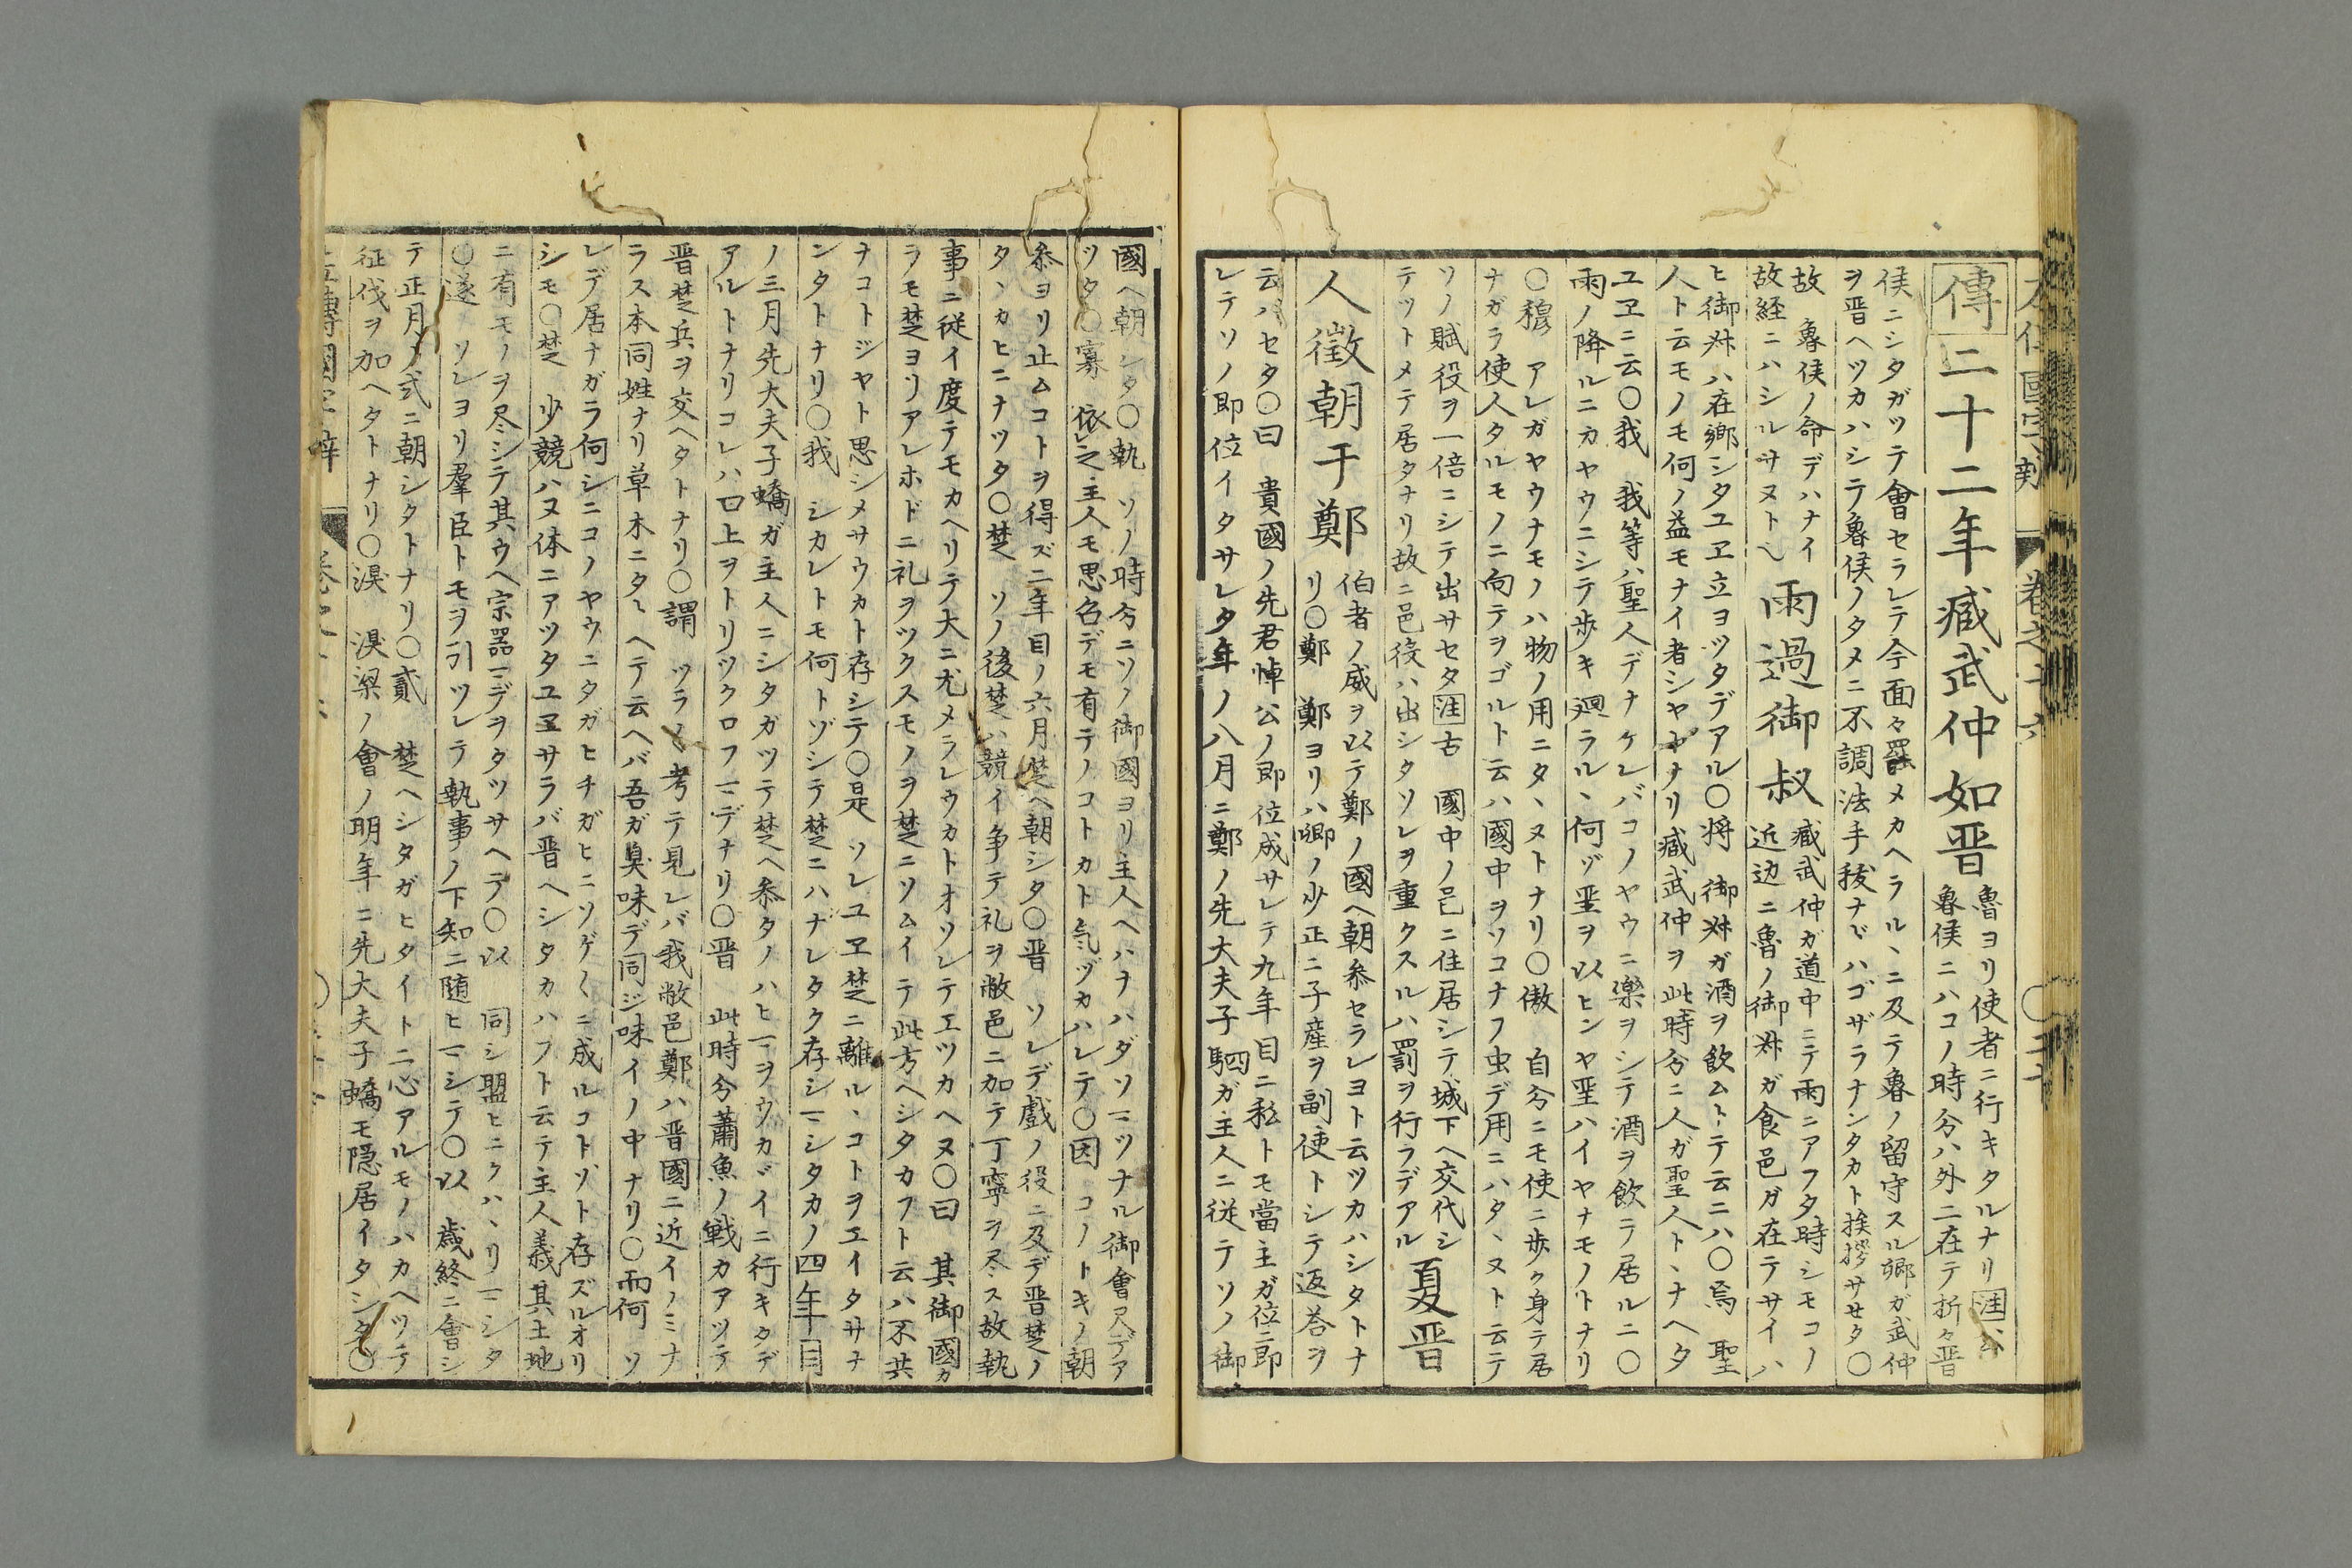 傳二十二年臧武仲如晋
魯ヨリ使者ニ行キタルナリ注公
魯侯ニハコノ時分ハ外ニ在テ折々晋
侯ニシタガツテ會セラレテ今面々罷メカヘラル丶ニ及テ魯ノ留守スル卿ガ武仲
ヲ晋ヘツカハシテ魯侯ノタメニ不調法手抜ナドハゴザラナンタカト挨拶サセタ〇
故 魯侯ノ命デハナイ
故経ニハシルサヌト也
雨過御叔
臧武仲ガ道中ニテ雨ニアフタ時シモコノ
近辺ニ魯ノ御叔ガ食邑ガ在テサイハ
ヒ御叔ハ在郷シタユヱ立ヨツタデアル〇将 御叔ガ酒ヲ飲ムトテ云ニハ〇焉 聖
人ト云モノモ何ノ益モナイ者シヤナリ臧武仲ヲ此時分ニ人ガ聖人ト丶ナヘタ
ユヱニ云〇我 我等ハ聖人デナケレバコノヤウニ楽ヲシテ酒ヲ飲テ居ルニ〇
雨ノ降ルニカヤウニシテ歩キ廻ラル丶何ゾ聖ヲ以ヒンヤ聖ハイヤナモノトナリ
〇穆 アレガヤウナモノハ物ノ用ニタ丶ヌトナリ〇傲 自分ニモ使ニ歩ク身テ居
ナガラ使人タルモノニ向テヲゴルト云ハ國中ヲソコナフ虫デ用ニハタ丶ヌト云テ
ソノ賦役ヲ一倍ニシテ出サセタ注古 國中ノ邑ニ住居シテ城下ヘ交代シ
テツトメテ居タナリ故ニ邑役ハ出シタソレヲ重クスルハ罰ヲ行ラデアル
夏晋
人徴朝于鄭
伯者ノ威ヲ以テ鄭ノ國ヘ朝参セラレヨト云ツカハシタトナ
リ〇鄭 鄭ヨリハ卿ノ少正ニ子産ヲ副使トシテ返答ヲ
云ハセタ〇曰 貴國ノ先君悼公ノ即位成サレテ九年目ニ私トモ當主ガ位ニ即
レテソノ即位イタサレタ年ノ八月ニ鄭ノ先大夫子駟ガ主人ニ従テソノ御
國ヘ朝シタ〇執 ソノ時分ニソノ御國ヨリ主人ヘハナハダソマツナル御會尺デア
ツタ〇寡 依之主人モ思召デモ有テノコトカト気ヅカハレテ〇因 コノトキノ朝
参ヨリ止ムコトヲ得ズ二年目ノ六月楚ヘ朝シタ〇晋 ソレデ戯ノ役ニ及デ晋楚ノ
タ丶カヒニナツタ〇楚 ソノ後楚ハ競イ争テ礼ヲ敝邑ニ加テ丁寧ヲ尽ス故執
事ニ従イ度テモカヘリテ大ニ尤メラレウカトオソレテエツカヘヌ〇曰 其御國カ
ラモ楚ヨリアレホドニ礼ヲツクスモノヲ楚ニソムイテ此方ヘシタカフト云ハ不共
ナコトジヤト思シメサウカト存シテ〇是 ソレユヱ楚ニ離ル丶コトヲエイタサナ
ンタトナリ〇我 シカレトモ何トゾシテ楚ニハナレタク存シマシタカノ四年目
ノ三月先大夫子蟜ガ主人ニシタガツテ楚ヘ参タノハヒマヲウカガイニ行キタデ
アルトナリコレハ口上ヲトリツクロフマデナリ〇晋 此時分蕭魚ノ戦カアツテ
晋楚兵ヲ交ヘタトナリ〇謂 ツラ〱考テ見レバ我敝邑鄭ハ晋國ニ近イノミナ
ラス本同姓ナリ草木ニタトヘテ云ヘバ吾ガ臭味デ同ジ味イノ中ナリ〇而何 ソ
レデ居ナガラ何シニコノヤウニタガヒチガヒニソゲ〱ニ成ルコトゾト存ズルオリ
シモ〇楚 少競ハヌ体ニアツタユヱサラバ晋ヘシタカハフト云テ主人義其土地
ニ有モノヲ尽シテ其ウヘ宗器マデヲタツサヘテ〇以 同シ盟ヒニクハ丶リマシタ
〇遂 ソレヨリ羣臣トモヲ引ツレテ執事ノ下知ニ随ヒマシテ〇以 歳終ニ會シ
テ正月ノ式ニ朝シタトナリ〇貳 楚ヘシタガヒタイト二心アルモノハカヘツテ
征伐ヲ加ヘタトナリ〇湨 湨梁ノ會ノ明年ニ先大夫子蟜モ隠居イタシタ〇